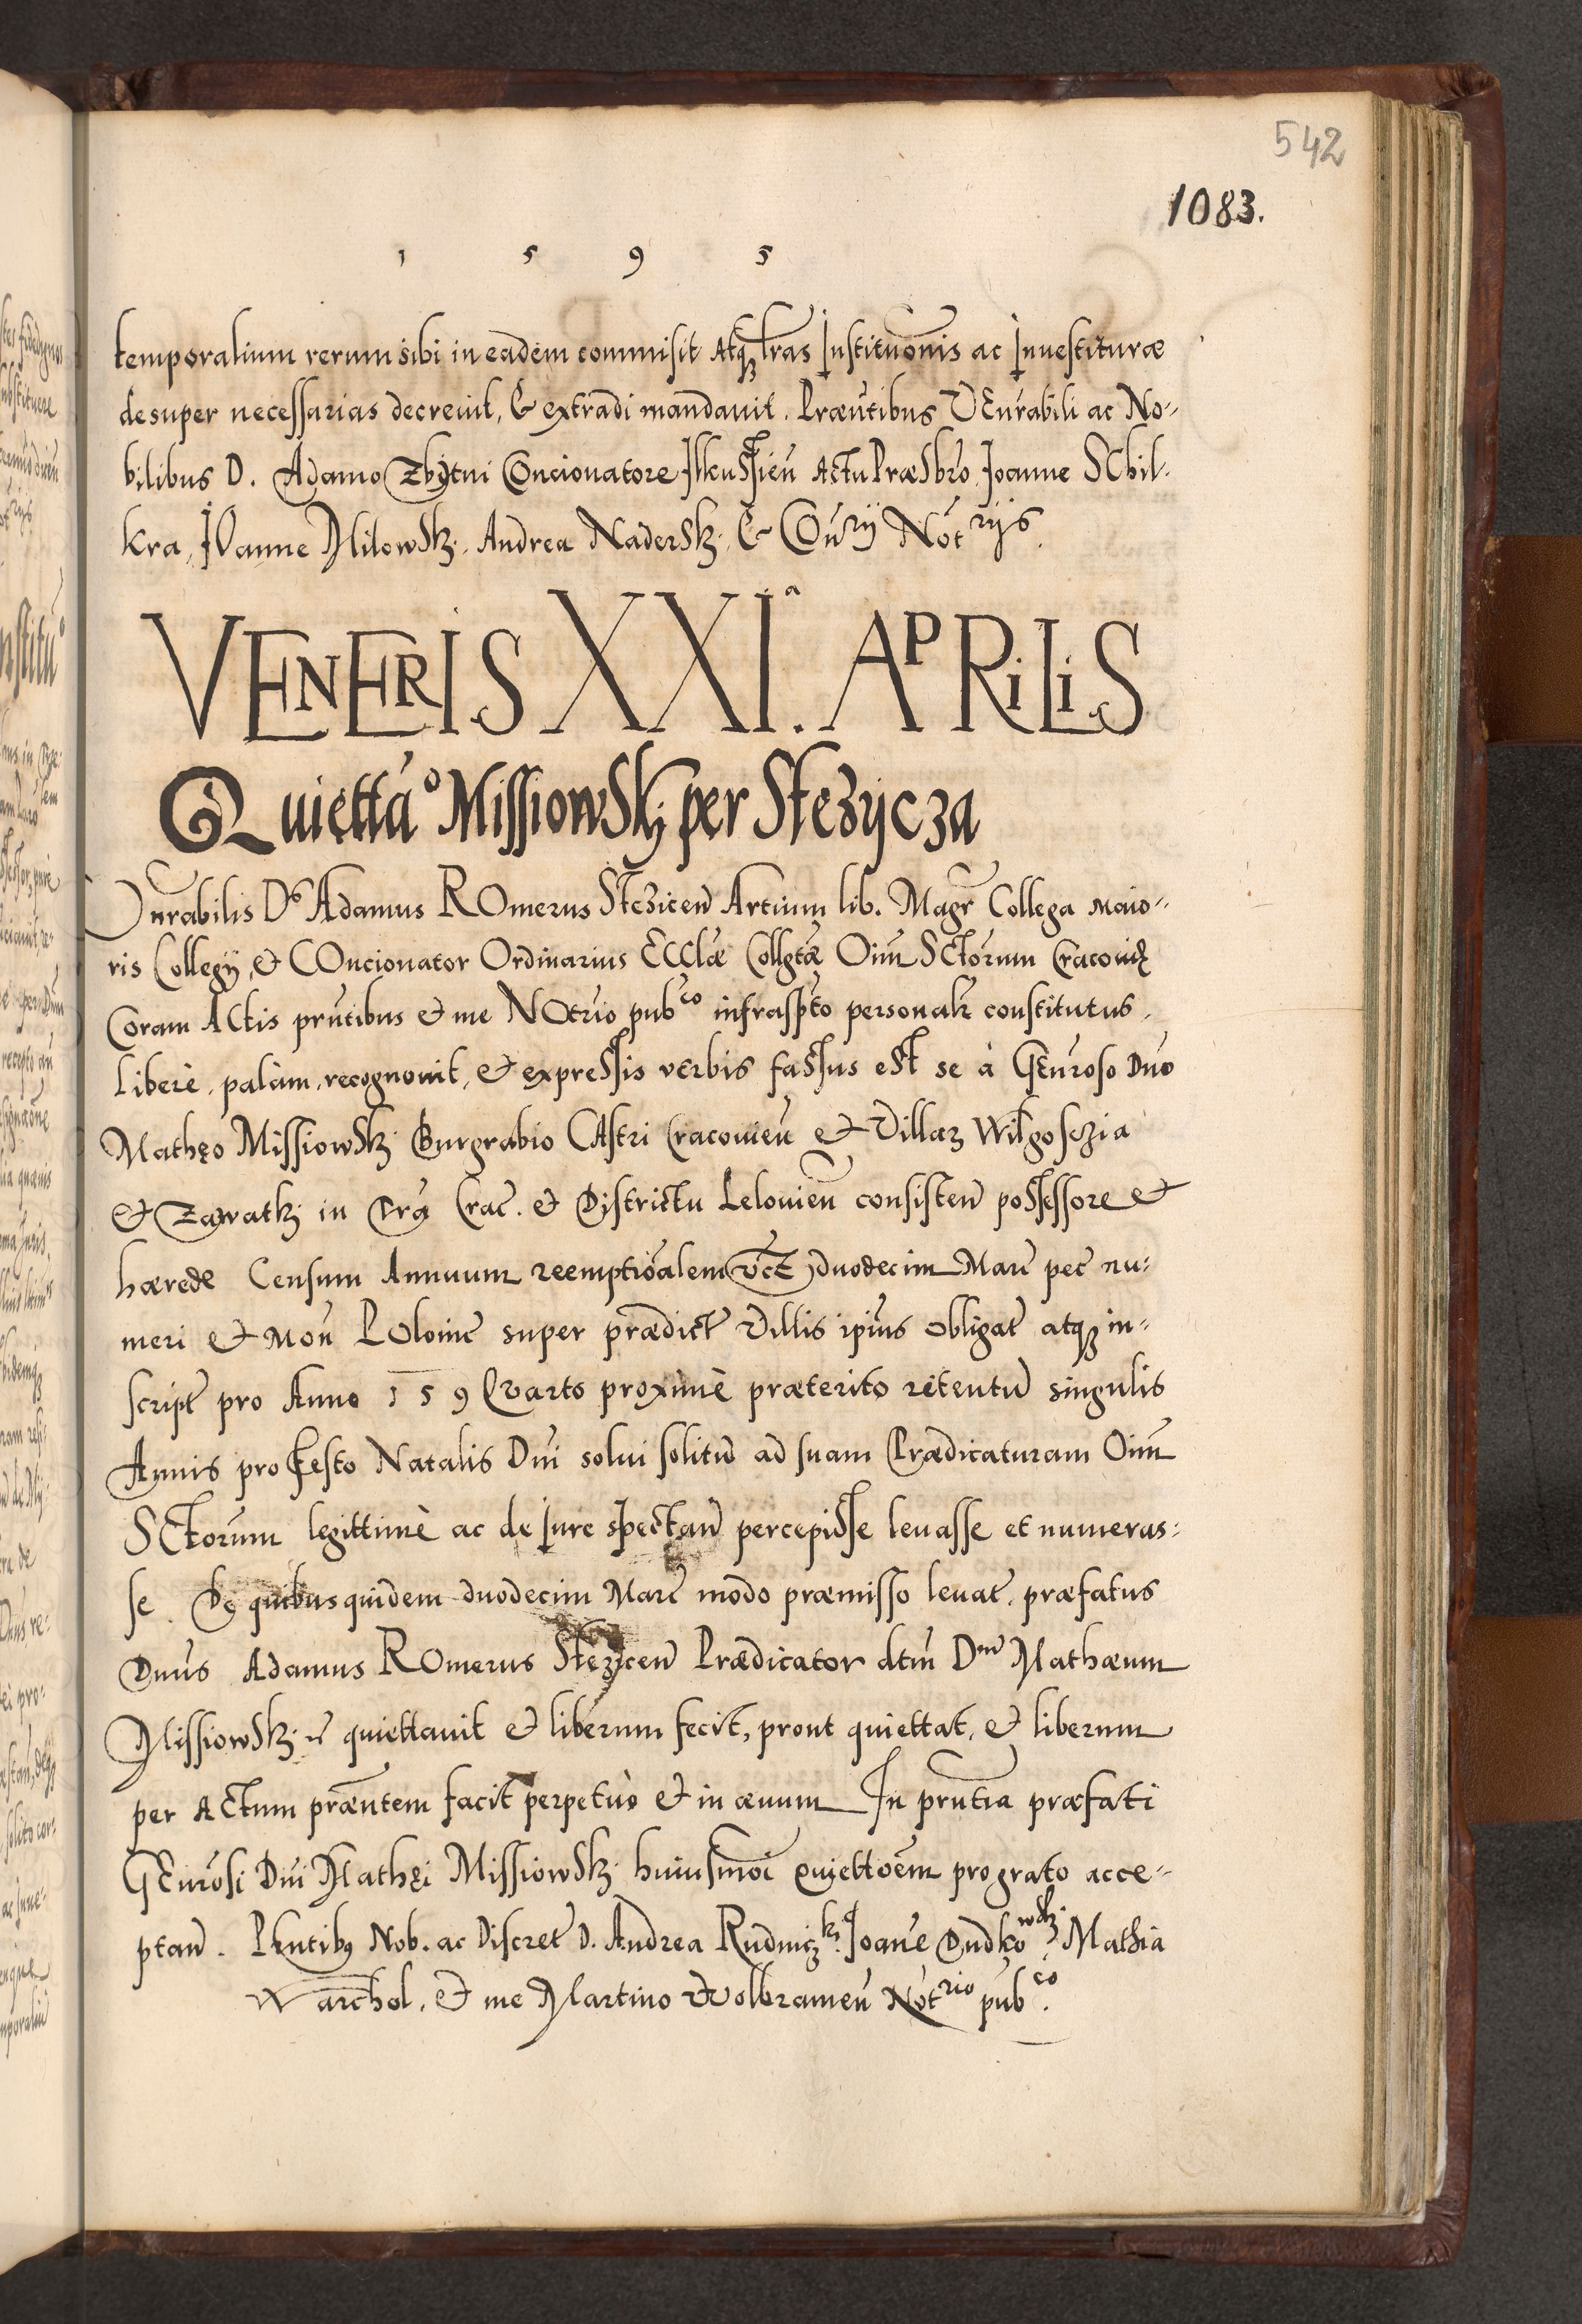 542
1083.
1 5 9 5
temporalium rerum sibi in eadem commisit Atq₃ lras Institutionis ac Inuestituræ
desuper necessarias decreuit, & extradi mandauit. Præntibus VEnrabili ac No-
bilibus D. Adamo Zbÿtni Concionatore Ilkussien Actu Præsbro, Joanne SChil.
kra, JOanne Milowsk, Andrea Nadersk, & Coūrij Notrijs.
VENERIS XXI.a APRiLiS
Quietta° Missiowsk per Stezÿcza
Vnrabilis Ds Adamus ROmerus Stezicen Artium lib. Magr Collega maio-
ris Collegÿ, & COncionator Ordinarius ECClæ Collgtæ Oīm SCtorum Cracouię
Coram ACtis prntibus & me NOtrio pubco infraspto personalr constitutus,
Liberè, palàm, recognouit, & expressis verbis fassus est se à GEnroso Dno
Mathęo Missiowsk Burgrabio CAstri Cracouien & Villar Wilgosczia
& Zawatk in Tra Crac. & Districtu Lelouien consisten possessore &
hærede Censum Annuum reemptioālem vct duodecim Marc pec nu-
meri & mon POlonic super prædict Villis ipius obligat atq₃ in-
script pro Anno 159 Qvarto proximè præterito retentum singulis
Annis pro festo Natalis Dni solui solitum ad suam Prædicaturam Oīm
SCtorum legittimè ac de Jure spectan percepisse leuasse et numeras-
se. De quibus quidem duodecim Marc modo præmisso leuat. præfatus
Dnus Adamus ROmerus Stezicen Prædicator dtm Dnm Mathæum
Missiowsk quiettauit & liberum fecit, prout quiettat, & liberum
per ACtum præntem facit perpetuò & in æuum In prntia præfati
GEnrosi Dni Mathęi Missiowsk huiusmoi quiettoem pro grato acce-
ptan. Pentib9 Nob. ac Discret D. Andrea Rudniczk, Joane Dudkowsk. Mathia
Warchol, & me Martino Wolbramen Notrio pubco.